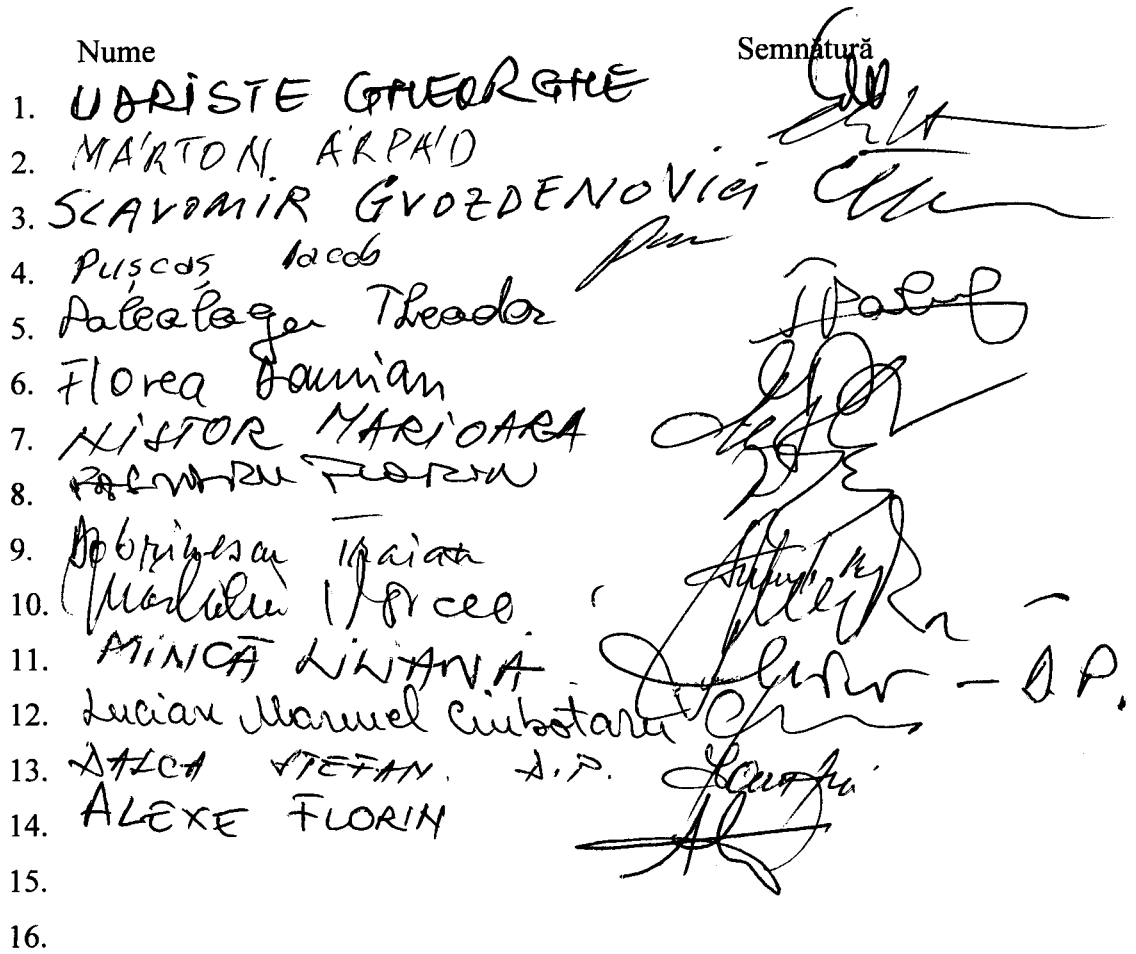 Nume Semnătură
1. UDRIȘTE GHEORGHE
2. MÁRTON ÁRPÁD
3. SLAVOMIR GVOZDENOVICI
4. Pușcaș Iacob
5. Paleologu Theodor
6. Florea Damian
7. NISTOR MARIOARA
8. FLORIN
9. Dobrinescu Traian
10.
11. MINCĂ LILIANA - D.P.
12. Lucian Manuel Ciubotaru
13. DALCA STEFAN. D.P.
14. ALEXE FLORIN
15.
16.